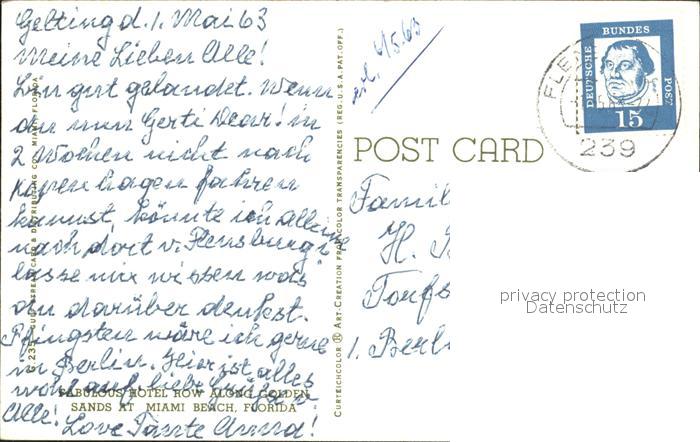 Gelting d. 1. Mai 63
Meine Lieben Alle!
Bin gut gelandet. Wenn
du nun Gerti Dear! in
2 Wochen nicht nach
Kopenhagen fahren
kannst, könnte ich alleine
nach dort v. Flensburg!
lasse mix wissen was
du darüber denkst.
Pfingsten wäre ich gerne
in Berlin. Hier ist alles
wohl auf. liebe Grüsse
Alle! Love Tante Anna!
FABULOUS HOTEL ROW ALONG GOLDEN
SANDS AT MIAMI BEACH, FLORIDA
GULF STREAM CARD & DISTRIBUTING CO., MIAMI, FLORIDA
CURTEICHCOLOR ® ART-CREATION FROM COLOR TRANSPARENCIES (REG. U.S.A. PAT. OFF.)
4/5.63
POST CARD
DEUTSCHE BUNDES POST
15
FLE
239
Famil
H.
Torfs
1. Berl
privacy protection
Datenschutz